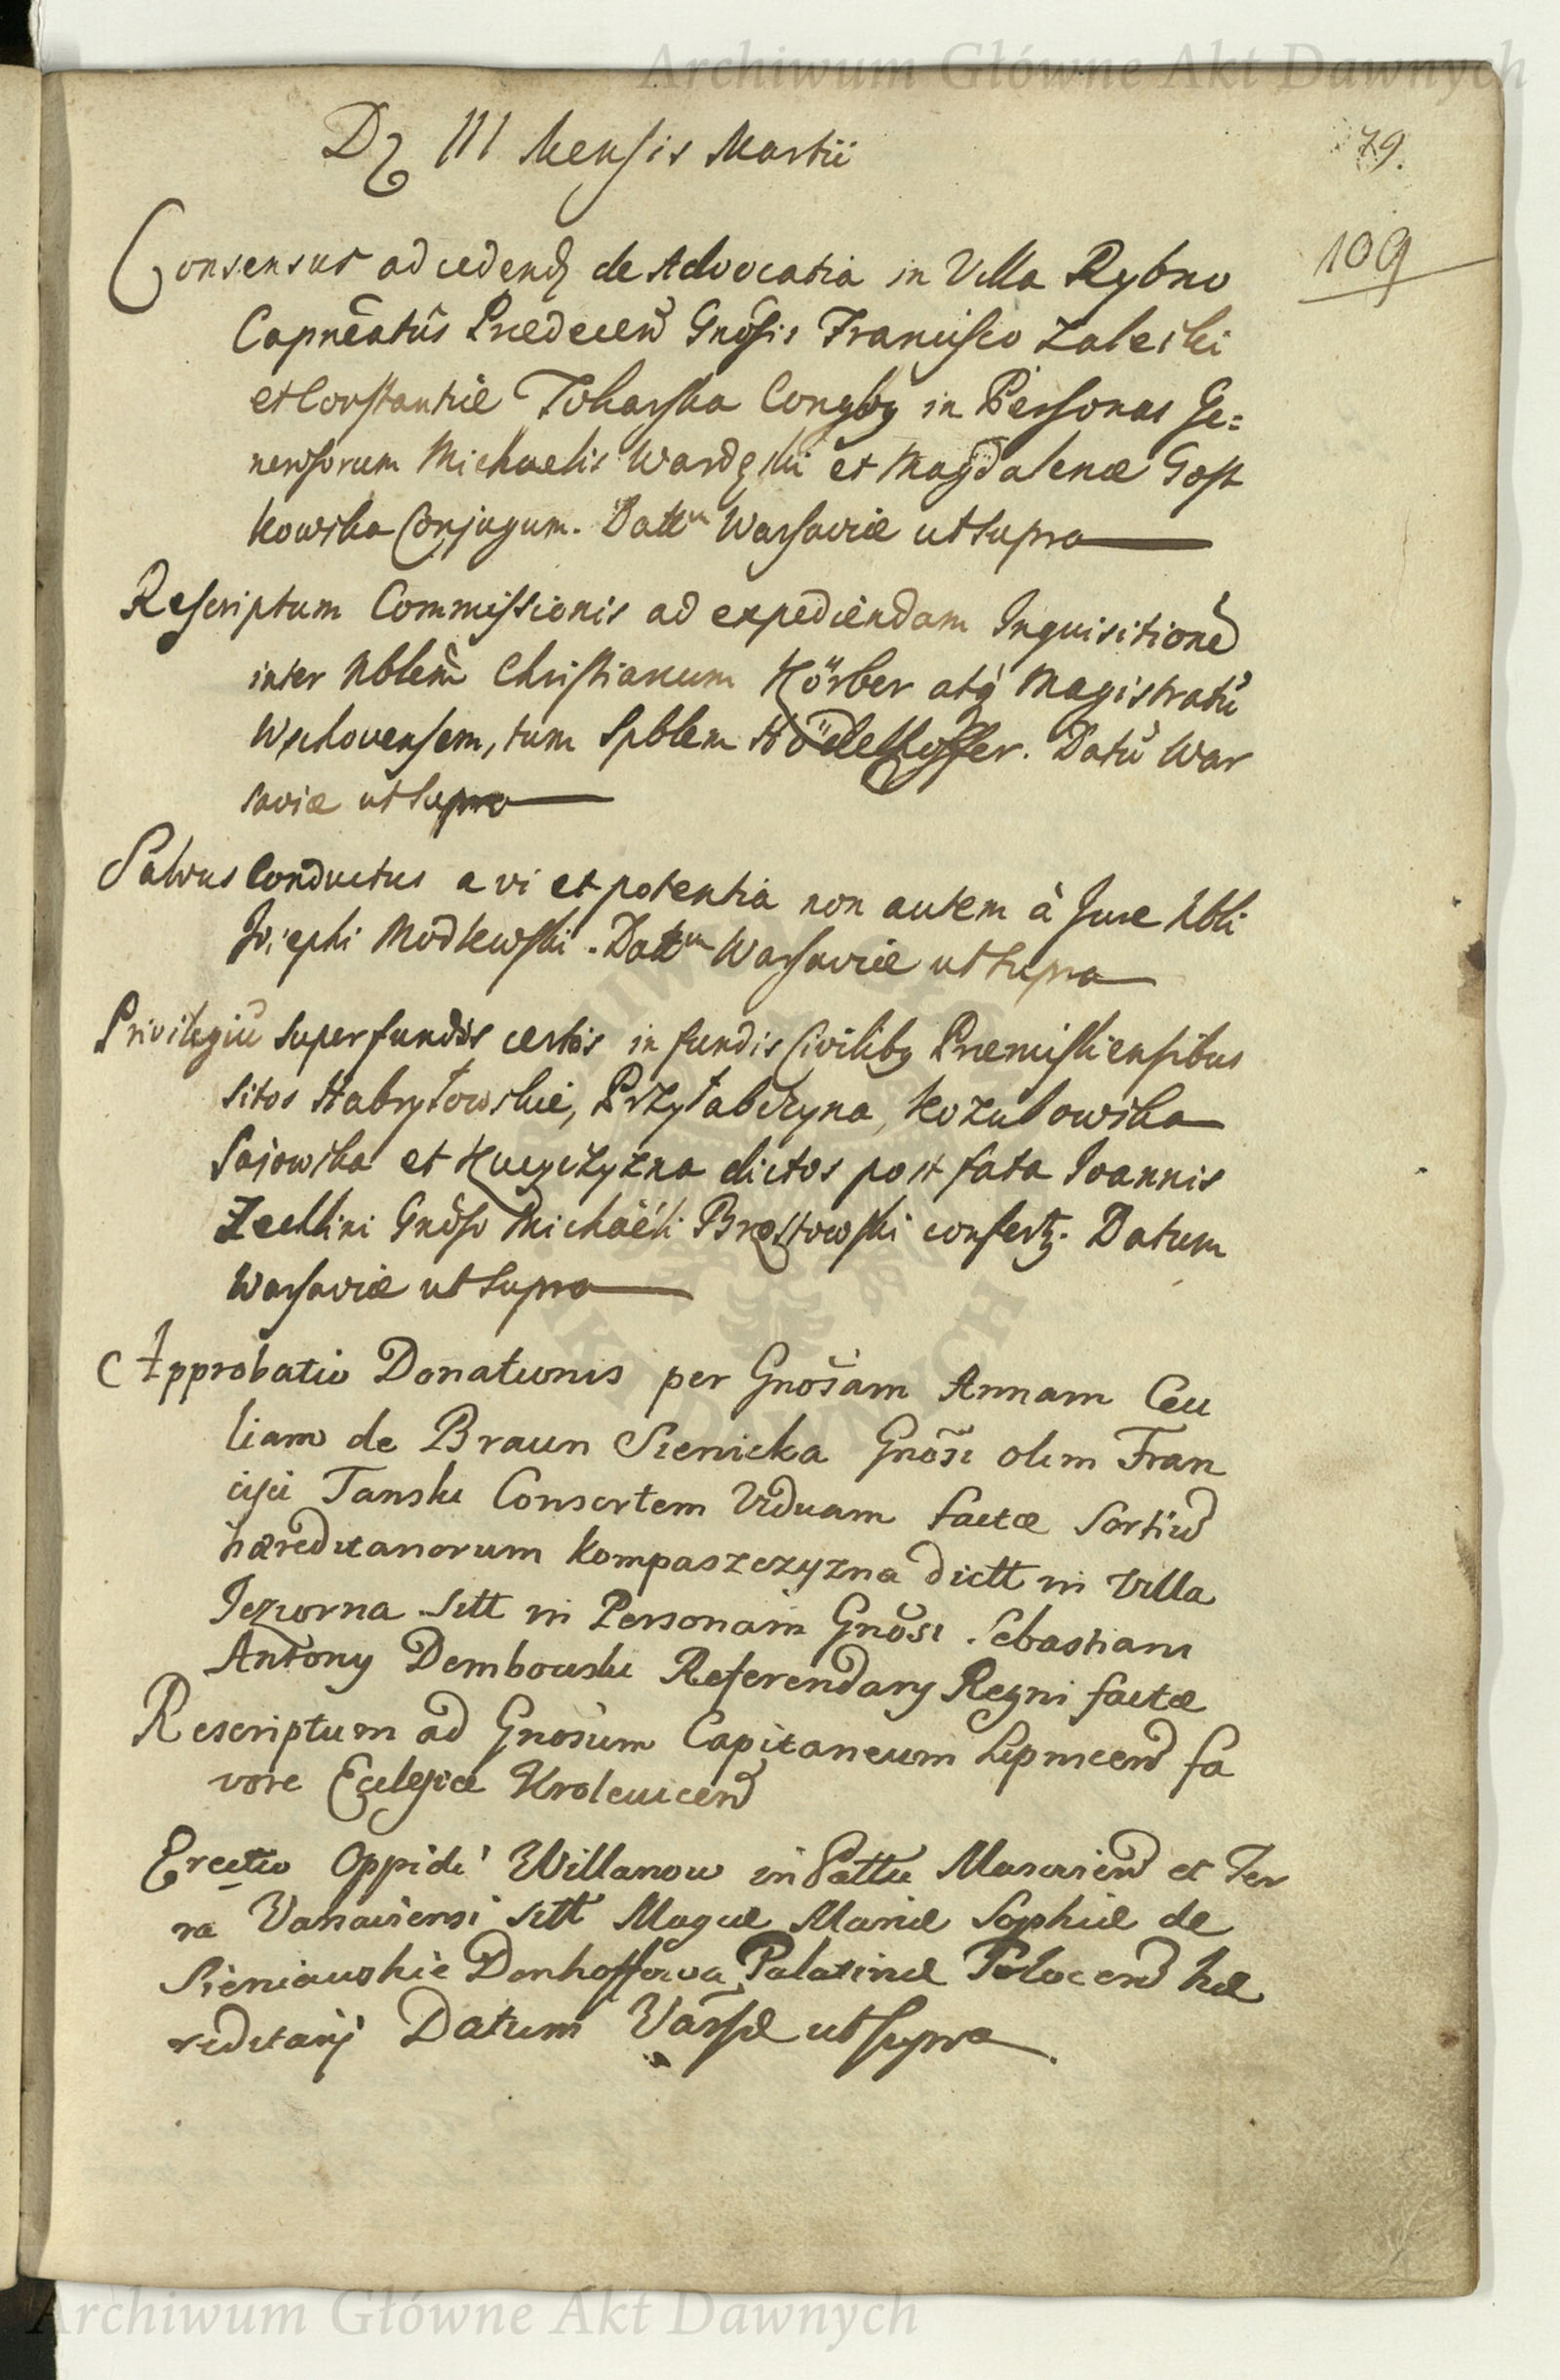 Archiwum Główne Akt Dawnych
D III Mensis Martii
79.
109
Consensus ad cedend de Advocatia in Villa Rybno
Capnẽatûs Præđecen Gnõsis Francisco Zaleski
et Constantiæ Tokarska Conjgby in Personas Ge=
nerosorum Michaelis Wardęski et Magdalenæ Gost
kowska Conjugum. Dattm Warsaviæ ut supra
Rescriptum Commissionis ad expediendam Inquisitione
inter Nblem Christianum Körber atq Magistratu
Wschovensem, tum Spblem Hödelhoffer. Datu War
saviæ ut supra
Salvus Conductus a vi et potentia non autem à Jure Nbli
Josephi Modlewski. Dattm Warsaviæ ut supra
Privilegiu super fundos certos in fundis Civiliby Præmisliensibus
sitos Habrytowskie, Przytabczyna, Kozubowska
Sajowska et Kuczyczyzna dictos post fata Joannis
Zecllini Gnõso Michaëli Brzostowski confert. Datum
Warsaviæ ut supra
Approbatio Donationis per Gnõsam Annam Ceci
liam de Braun Sienicka Gnõsi olim Fran
cisci Tanski Consortem Viduam factæ Sortiu
hæreditariorum Kompaszczyzna dictt in Villa
Jeziorna sitt in Personam Gnõsi Sebastiani
Antony Dembowski Referendary Regni factæ
Rescriptum ad Gnosum Capitaneum Lipnicen fa
vore Eclesiæ Krolewicen
Erectio Oppidi Willanow in Pattu Masovien et Ter
ra Varsaviensi sitt Magcæ Mariæ Sophiæ de
Sieniawskie Donhoffowa Palatinæ Polocen hæ
reditarij Datum Varsæ ut supra
Archiwum Główne Akt Dawnych